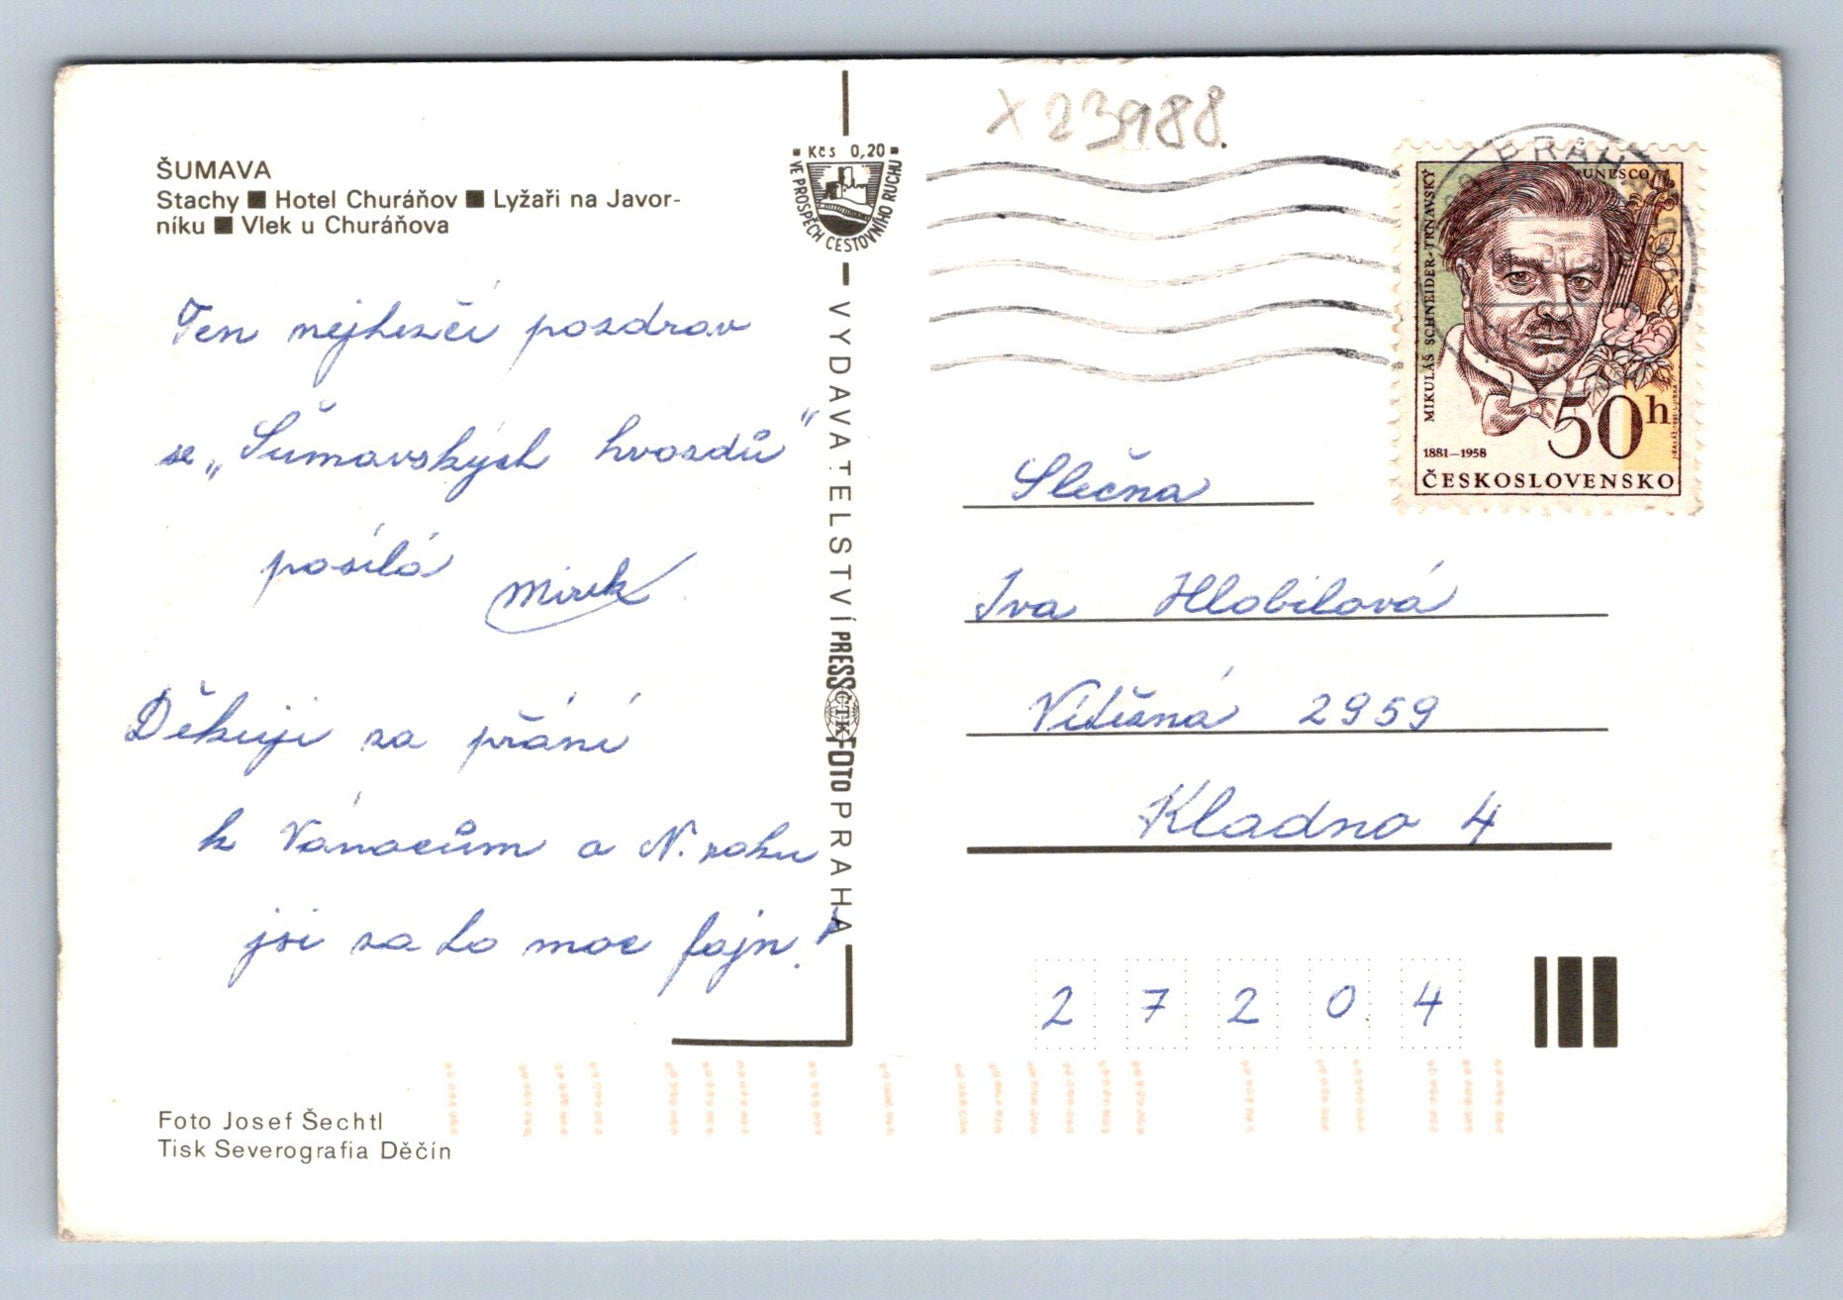 ŠUMAVA
Stachy ■ Hotel Churáňov ■ Lyžaři na Javor-
níku ■ Vlek u Churáňova
Ten nejhezčí pozdrav
ze „Šumavských hvozdů“
posílá Mirek
Děkuji za přání
k Vánocům a N. roku
jsi za to moc fajn!
Foto Josef Šechtl
Tisk Severografia Děčín
Kčs 0,20
VE PROSPĚCH CESTOVNÍHO RUCHU
VYDAVATELSTVÍ PRESSFOTO PRAHA
ČTK
X 23988.
PRAHA
UNESCO
MIKULÁŠ SCHNEIDER-TRNAVSKÝ
50h
1881—1958
ČESKOSLOVENSKO
Slečna
Iva Hlobilová
Vítězná 2959
Kladno 4
27204